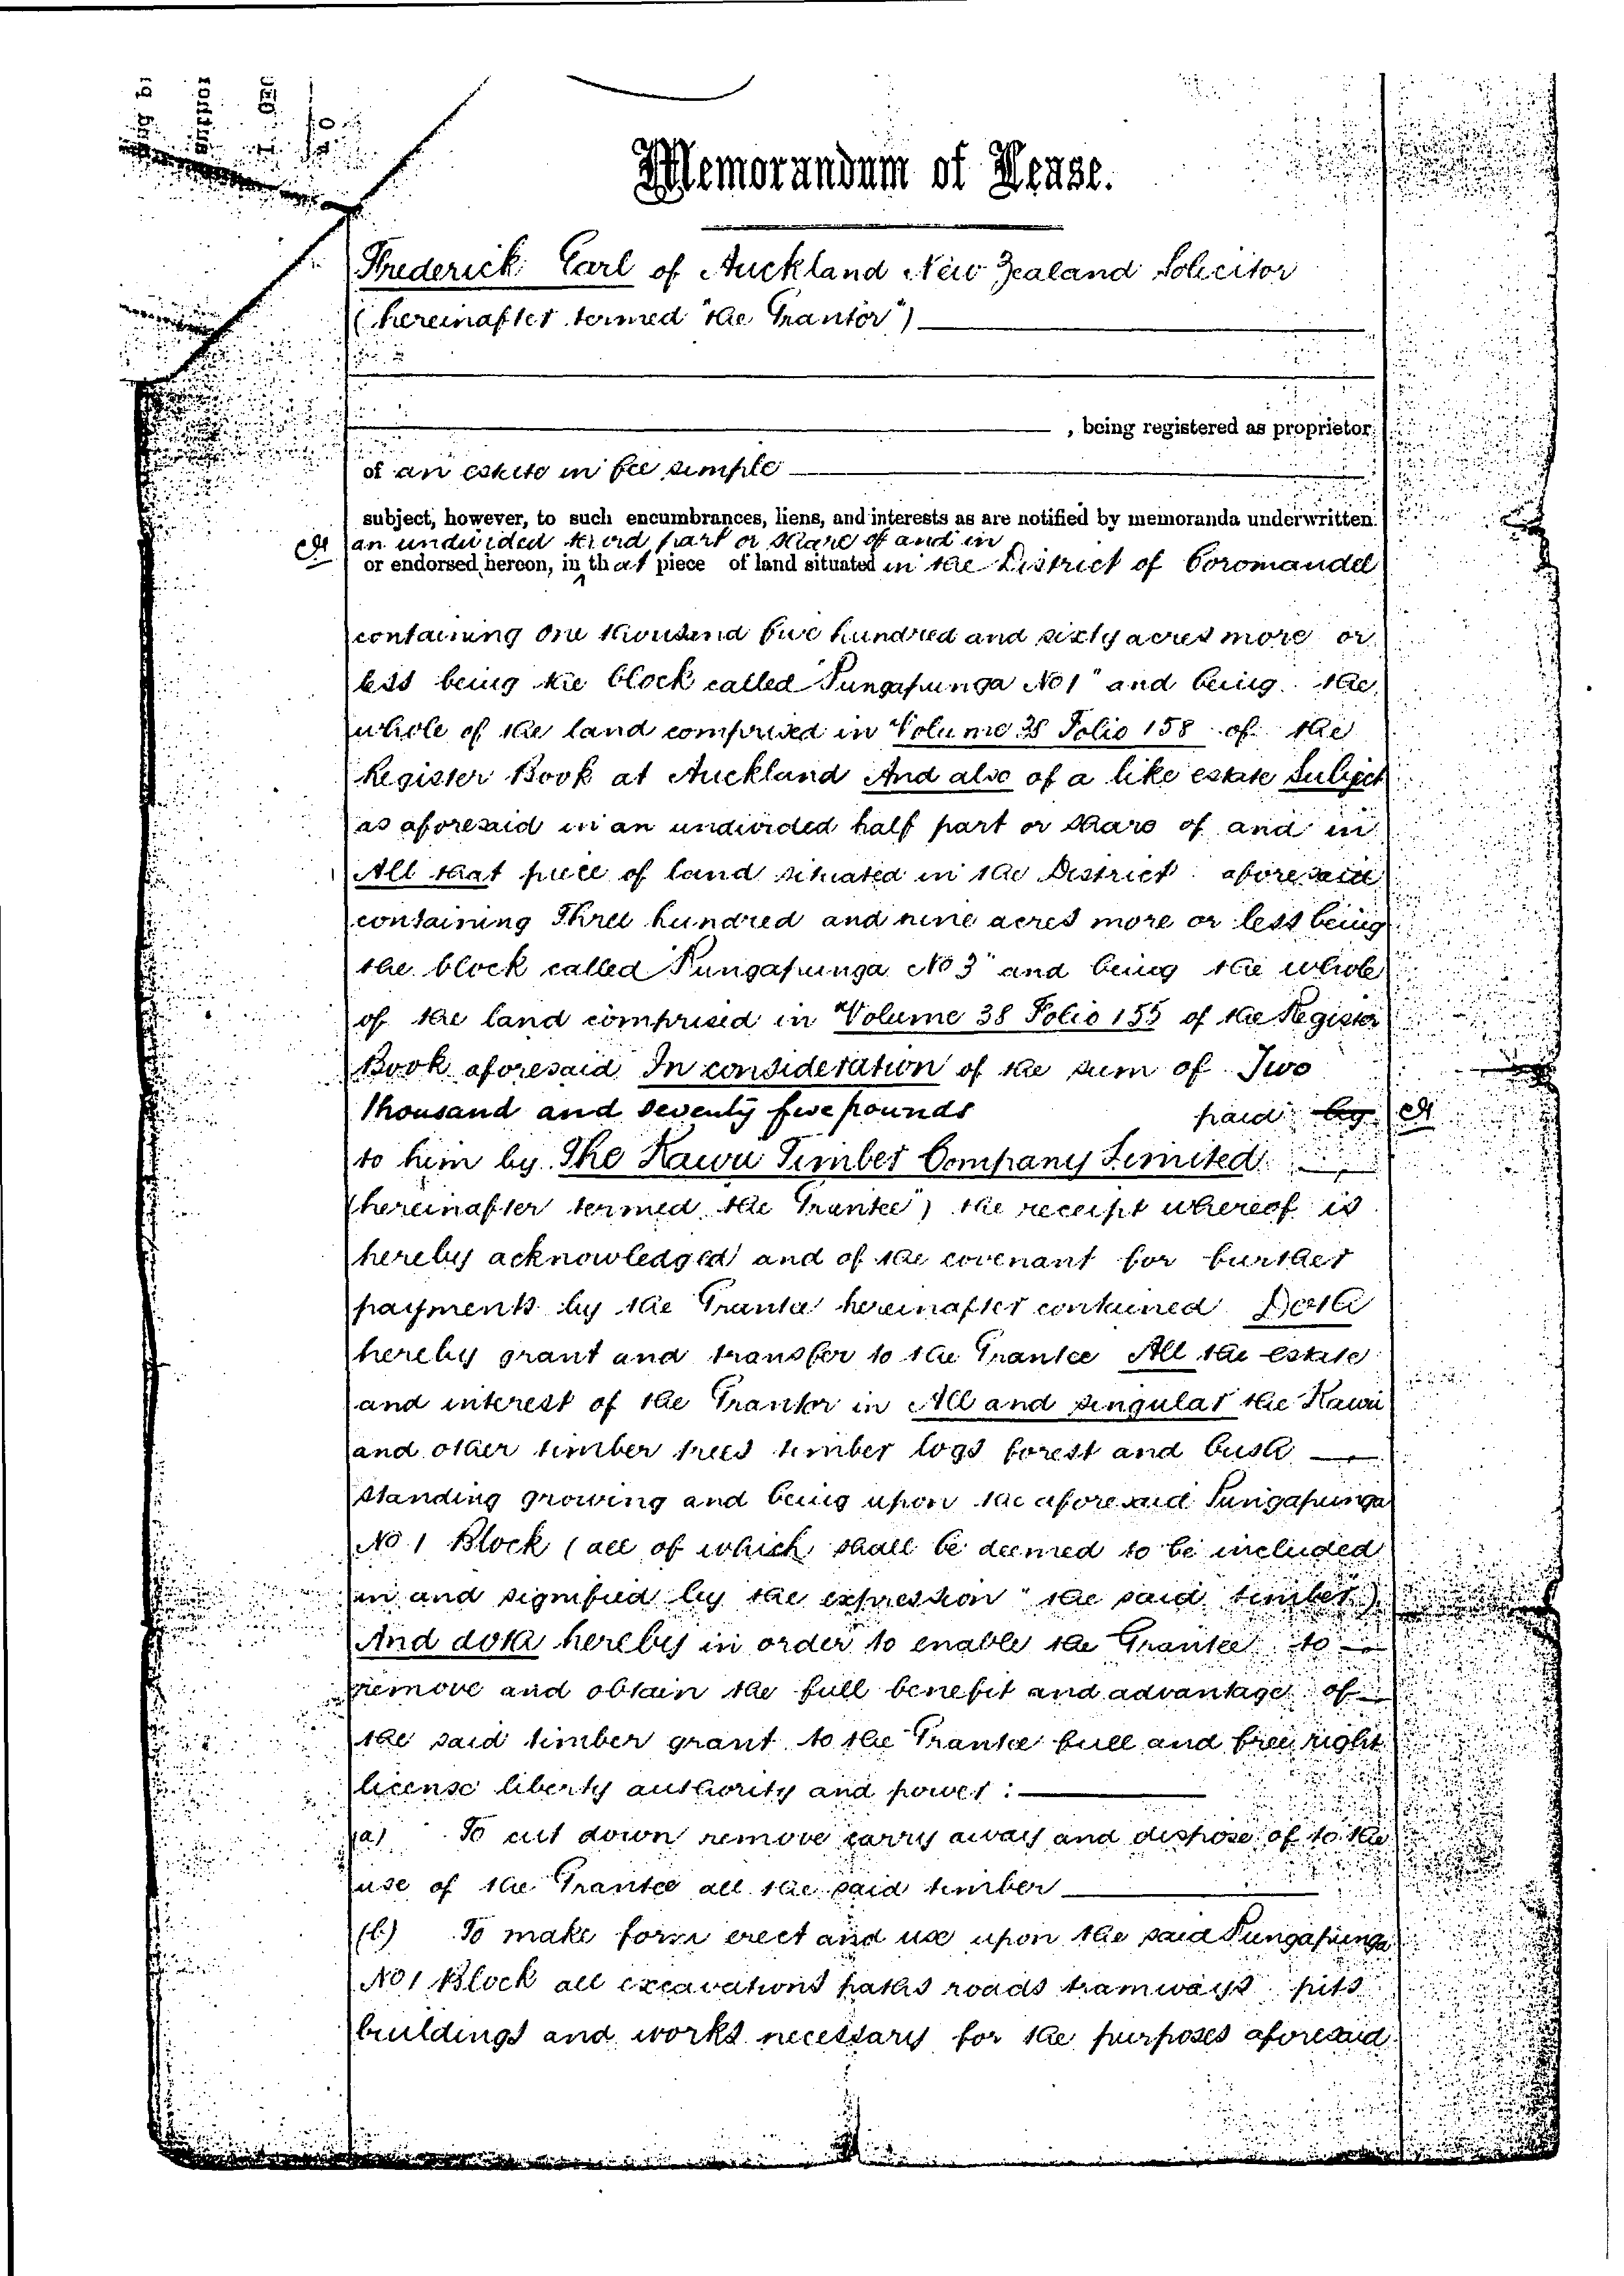 Memorandum of Lease.
Frederick Earl of Auckland New Zealand Solicitor
(hereinafter termed "the Grantor")
, being registered as proprietor
of an estate in fee simple
subject, however, to such encumbrances, liens, and interests as are notified by memoranda underwritten
an undivided third part or share of and in
or endorsed hereon, in that piece of land situated in the District of Coromandel
containing One thousand five hundred and sixty acres more or
less being the block called "Pungapunga No 1" and being the
whole of the land comprised in Volume 38 Folio 158 of the
Register Book at Auckland And also of a like estate Subject
as aforesaid in an undivided half part or share of and in
All that piece of land situated in the District aforesaid
containing Three hundred and nine acres more or less being
the block called "Pungapunga No 3" and being the whole
of the land comprised in Volume 38 Folio 155 of the Register
Book aforesaid In consideration of the sum of Two
thousand and seventy five pounds paid by
to him by The Kauri Timber Company Limited
(hereinafter termed "the Grantee") the receipt whereof is
hereby acknowledged and of the covenant for further
payments by the Grantee hereinafter contained Doth
hereby grant and transfer to the Grantee All the estate
and interest of the Grantor in All and singular the Kauri
and other timber trees timber logs forest and bush
standing growing and being upon the aforesaid Pungapunga
No 1 Block (all of which shall be deemed to be included
in and signified by the expression "the said timber")
And doth hereby in order to enable the Grantee to
remove and obtain the full benefit and advantage of
the said timber grant to the Grantee full and free right
license liberty authority and power :
(a) To cut down remove carry away and dispose of to the
use of the Grantee all the said timber
(b) To make form erect and use upon the said Pungapunga
No 1 Block all excavations paths roads tramways pits
buildings and works necessary for the purposes aforesaid